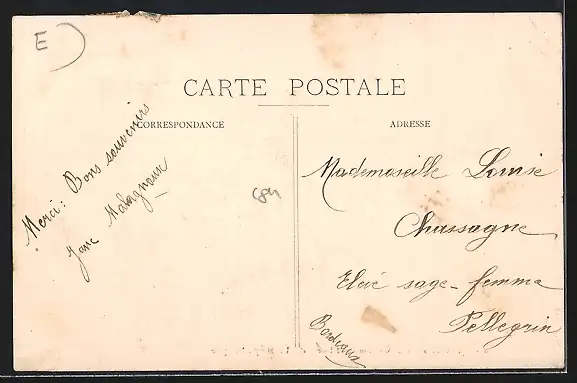 E
CARTE POSTALE
CORRESPONDANCE
ADRESSE
Merci: Bons souvenirs
Jane
Mademoiselle Louise
Chassagne
Elève sage-femme
Pellegrin
Bordeaux